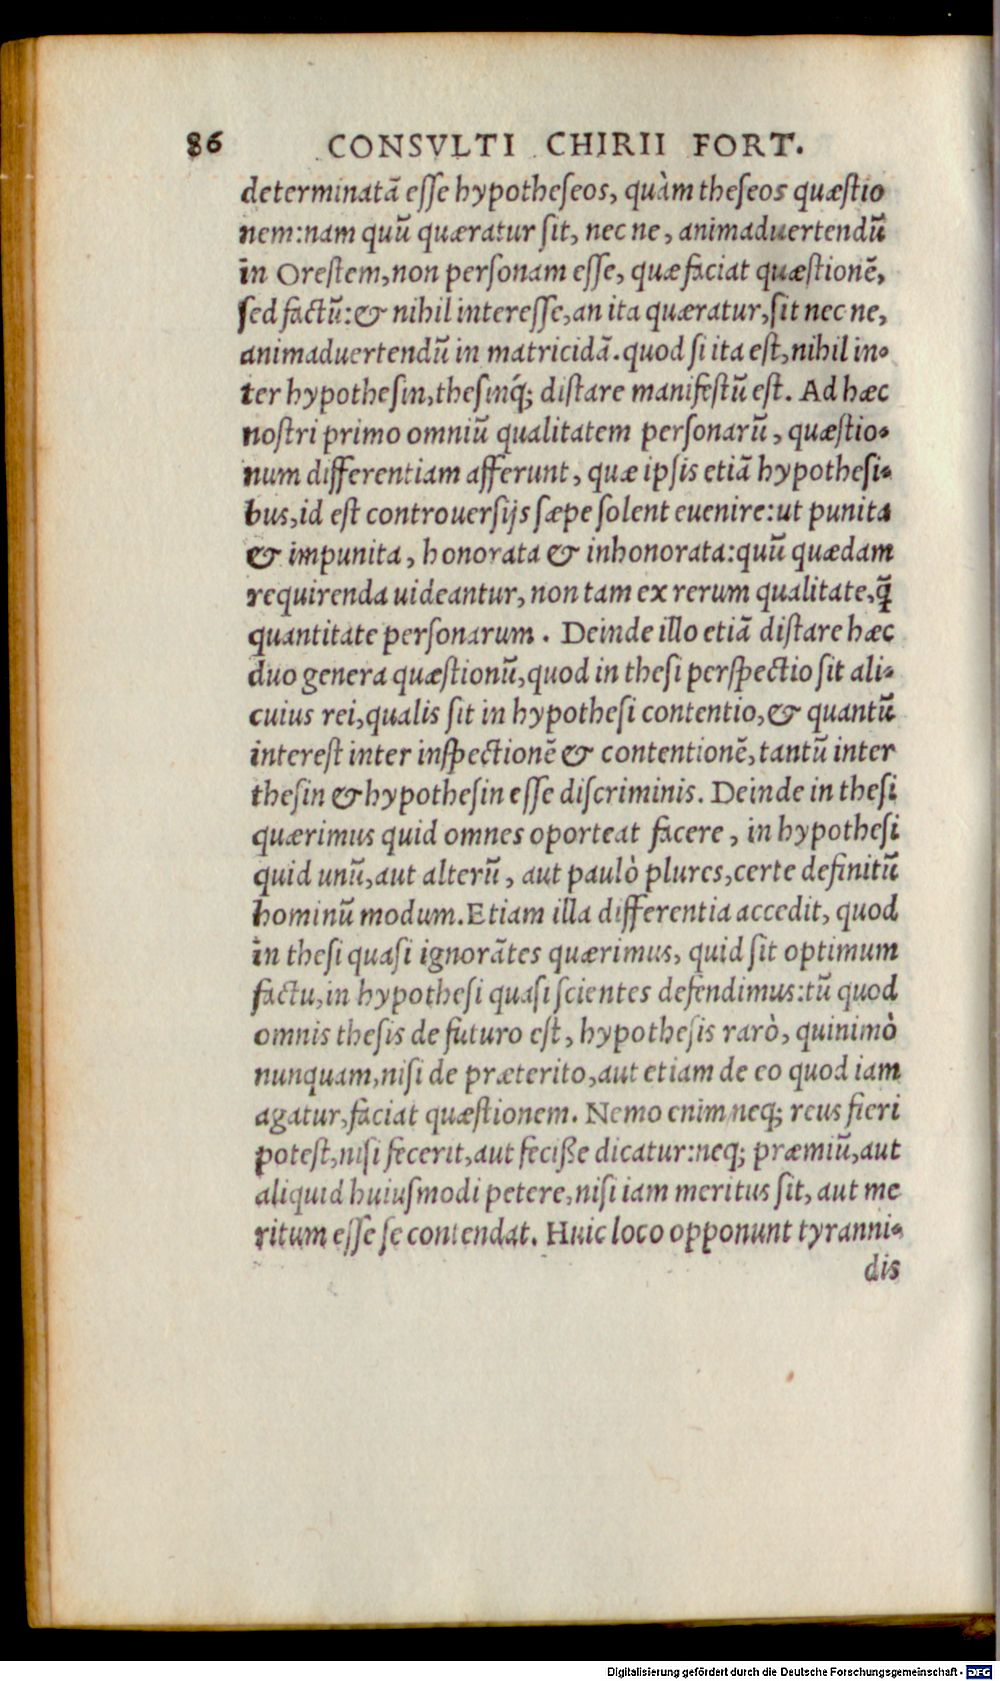 86 CONSVLTI CHIRII FORT.
determinatã esse hypotheseos, quàm theseos quæstio
nem: nam quũ quæratur sit, nec ne, animaduertendũ
in Orestem, non personam esse, quæ faciat quæstionẽ,
sed factũ: & nihil interesse, an ita quæratur, sit nec ne,
animaduertendũ in matricidã. quod si ita est, nihil in-
ter hypothesin, thesinq́; distare manifestũ est. Ad hæc
nostri primo omniũ qualitatem personarũ, quæstio-
num differentiam afferunt, quæ ipsis etiã hypothesi-
bus, id est controuersijs sæpe solent euenire: ut punita
& impunita, honorata & inhonorata: quũ quædam
requirenda uideantur, non tam ex rerum qualitate, q̃
quantitate personarum. Deinde illo etiã distare hæc
duo genera quæstionũ, quod in thesi perspectio sit ali-
cuius rei, qualis sit in hypothesi contentio, & quantũ
interest inter inspectionẽ & contentionẽ, tantũ inter
thesin & hypothesin esse discriminis. Deinde in thesi
quærimus quid omnes oporteat facere, in hypothesi
quid unũ, aut alterũ, aut paulò plures, certe definitũ
hominũ modum. Etiam illa differentia accedit, quod
in thesi quasi ignorãtes quærimus, quid sit optimum
factu, in hypothesi quasi scientes defendimus: tũ quod
omnis thesis de futuro est, hypothesis rarò, quinimò
nunquam, nisi de præterito, aut etiam de eo quod iam
agatur, faciat quæstionem. Nemo enim neq; reus fieri
potest, nisi fecerit, aut feciße dicatur: neq; præmiũ, aut
aliquid huiusmodi petere, nisi iam meritus sit, aut me
ritum esse se contendat. Huic loco opponunt tyranni-
dis
Digitalisierung gefördert durch die Deutsche Forschungsgemeinschaft - DFG